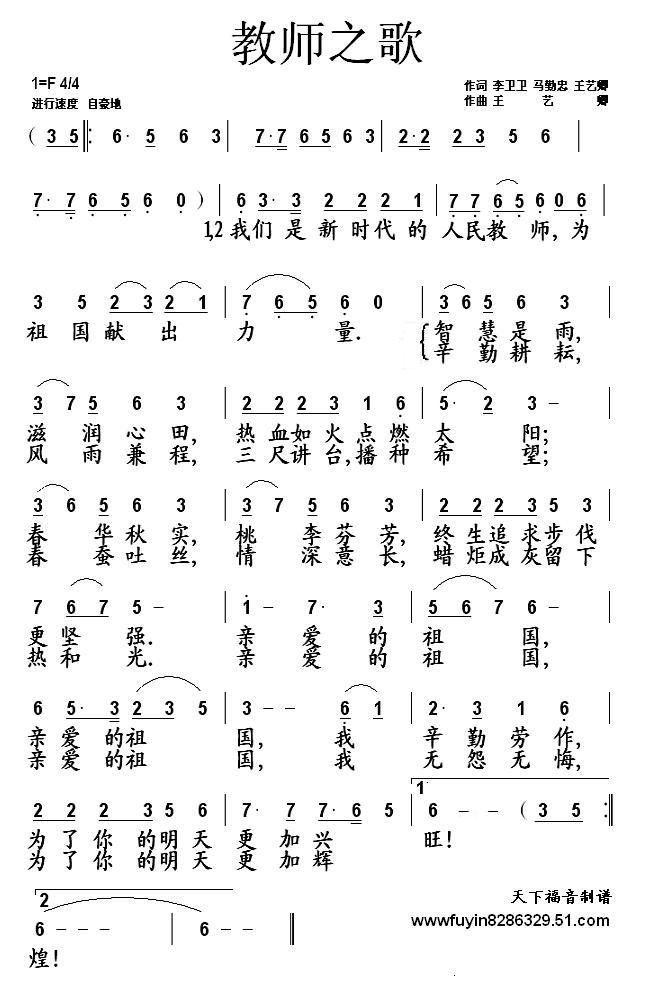 教师之歌
1=F 4/4
进行速度 自豪地
作词 李卫卫 马勤忠 王艺卿
作曲 王 艺 卿
( 3 5 ‖: 6· 5 6 3 | 7·7 6 5 6 3 | 2·2 2 3 5 6 |
7· 7 6 5 6 0 ) | 6 3· 3 2 2 2 1 | 7 7 6 5 6 0 6 |
1,2 我们 是 新 时代 的 人民教 师, 为
3 5 2 3 2 1 | 7 6 5 6 0 | 3 6 5 6 3 |
祖 国 献 出 力 量. 智 慧 是 雨,
辛 勤 耕 耘,
3 7 5 6 3 | 2 2 2 3 1 6 | 5· 2 3 – |
滋 润 心 田, 热 血如 火 点燃 太 阳;
风 雨 兼 程, 三 尺讲 台,播 种 希 望;
3 6 5 6 3 | 3 7 5 6 3 | 2 2 2 3 5 3 |
春 华 秋 实, 桃 李 芬 芳, 终 生追 求步 伐
春 蚕 吐 丝, 情 深 意 长, 蜡 炬成 灰留 下
7 6 7 5 – | 1 – 7· 3 | 5 6 7 6 – |
更 坚 强. 亲 爱 的 祖 国,
热 和 光. 亲 爱 的 祖 国,
6 5· 3 2 3 5 | 3 – – 6 1 | 2· 3 1 6 |
亲 爱 的祖 国, 我 辛 勤 劳 作,
亲 爱 的祖 国, 我 无 怨 无 悔,
2 2 2 3 5 6 | 7· 7 7·6 5 | 1 6 – – ( 3 5 :‖
为 了 你 的明 天 更 加 兴 旺!
为 了 你 的明 天 更 加 辉
天下福音制谱
2
6 – – | 6 – – ‖
www.fuyin8286329.51.com
煌!